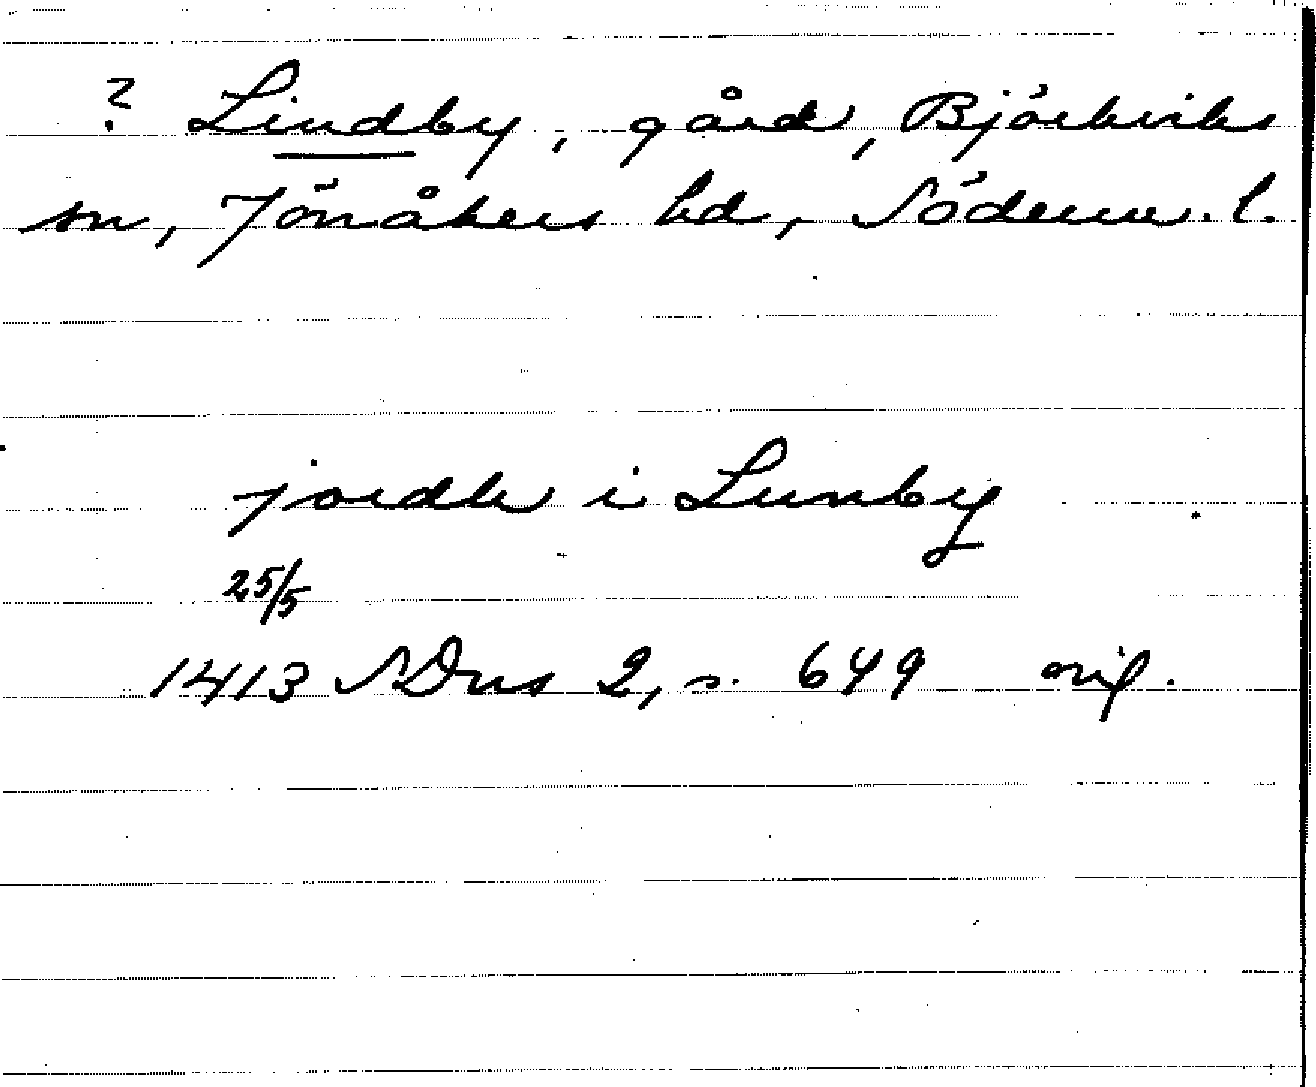 ? Lindby, gård, Björkviks
sn, Jönåkers hd, Söderm. l.
jordh i Lunby
25/5
1413 SDns 2, s. 649 orig.